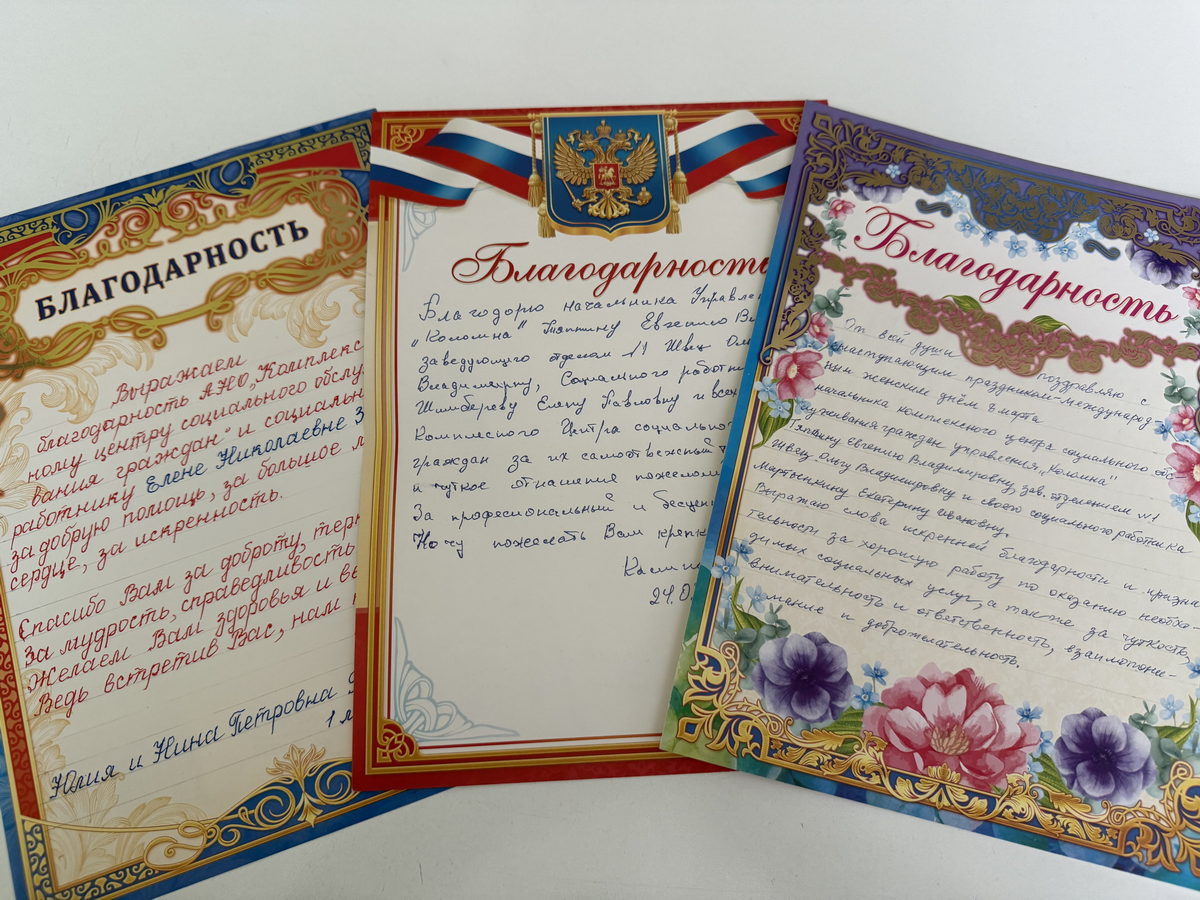 БЛАГОДАРНОСТЬ
Выражаем
благодарность АНО „Комплекс
ному центру социального обслу
вания граждан" и социальн
работнику Елене Николаевне З
за добрую помощь, за большое
сердце, за искренность.
Спасибо Вам за доброту, терп
За мудрость, справедливость
Желаем Вам здоровья и ве
Ведь встретив Вас, нам
Юлия и Нина Петровна
1
Благодарность
Благодарю начальника Управле
„Коломна" Тяпкину Евгению Вл
заведующего отделом №1 Швец Оль
Владимирну, Социального работни
Шимбереву Елену Павловну и всех
Комплесного Центра социально
граждан за их самоотвежный т
и чуткое отнашение пожелом
За професиональный и бесцен
Хочу пожелать Вам крепк
24.0
Благодарность
От всй души поздравляю с
наступающим праздником-международ-
ным женским днём 8 марта
начальника комплексного центра социального обс
луживания граждан управления „Коломна"
Тяпкину Евгению Владимировну, зав. отделением №1
Швец Ольгу Владимировну и своего социального работника
Мартынкину Екатерину Ивановну.
Выражаю слова искренней благодарности и призна
тельности за хорошую работу по оказанию необхо-
димых социальных услуг, а также за чуткость,
внимательность и ответственность, взаимопони-
мание и доброжелательность.